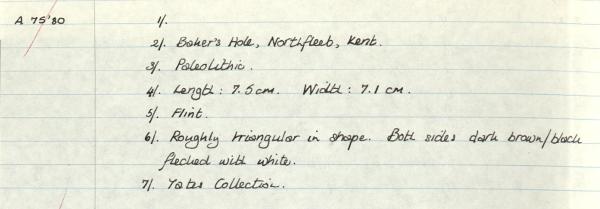 A 75'80
1/.
2/. Baker's Hole, Northfleet, Kent.
3/. Paleolithic.
4/. Length: 7.5cm. Width: 7.1 cm.
5/. Flint.
6/. Roughly triangular in shape. Both sides dark brown/black
flecked with white.
7/. Yates Collection.